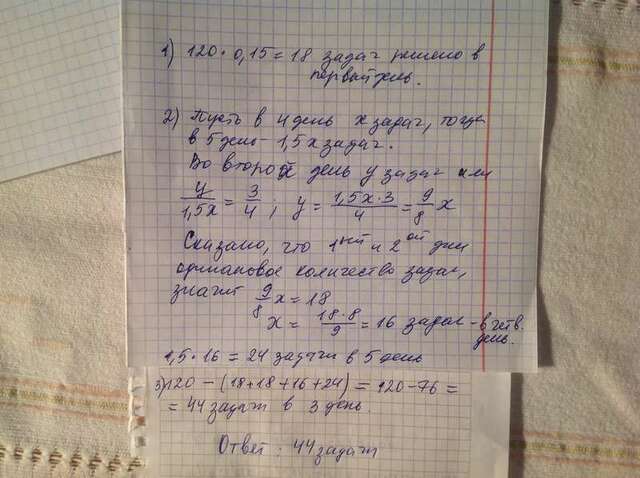 1) 120 · 0,15 = 18 задач решено в
первый день.
2) Пусть в 4 день x задач, тогда
в 5 день - 1,5x задач.
Во второй день y задач или
y/1,5x = 3/4 ; y = 1,5x·3/4 = 9/8 x
Сказано, что 1ый и 2ой дни
одинаковое количество задач,
значит 9/8 x = 18
x = 18·8/9 = 16 задач - в четв.
день.
1,5 · 16 = 24 задачи в 5 день
3) 120 - (18+18+16+24) = 120-76 =
= 44 задач в 3 день.
Ответ : 44 задач